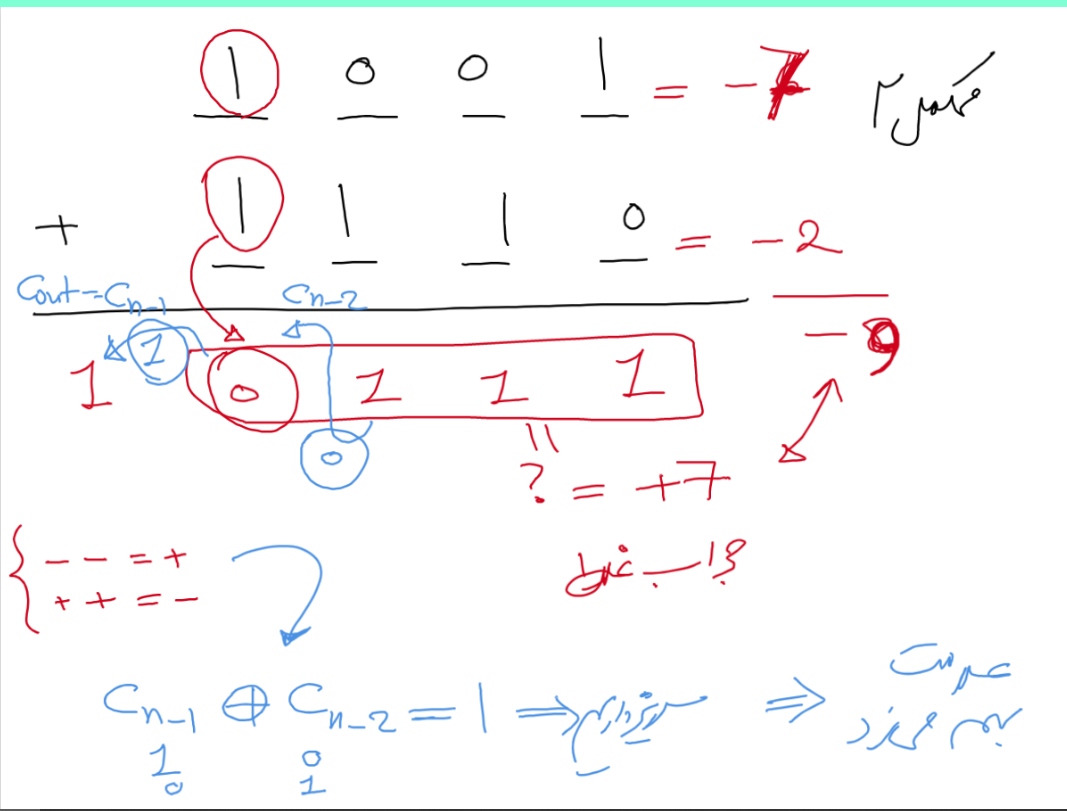 1 0 0 1 = -7 مکمل ۲
+ 1 1 1 0 = -2
Cout = Cn-1 Cn-2
-9
1 1 0 1 1 1
0
? = +7
- - = + جواب غلط
+ + = -
Cn-1 ⊕ Cn-2 = 1 ⇒ سرریز داریم ⇒ علامت
1 0 بهم میریزد
0 1